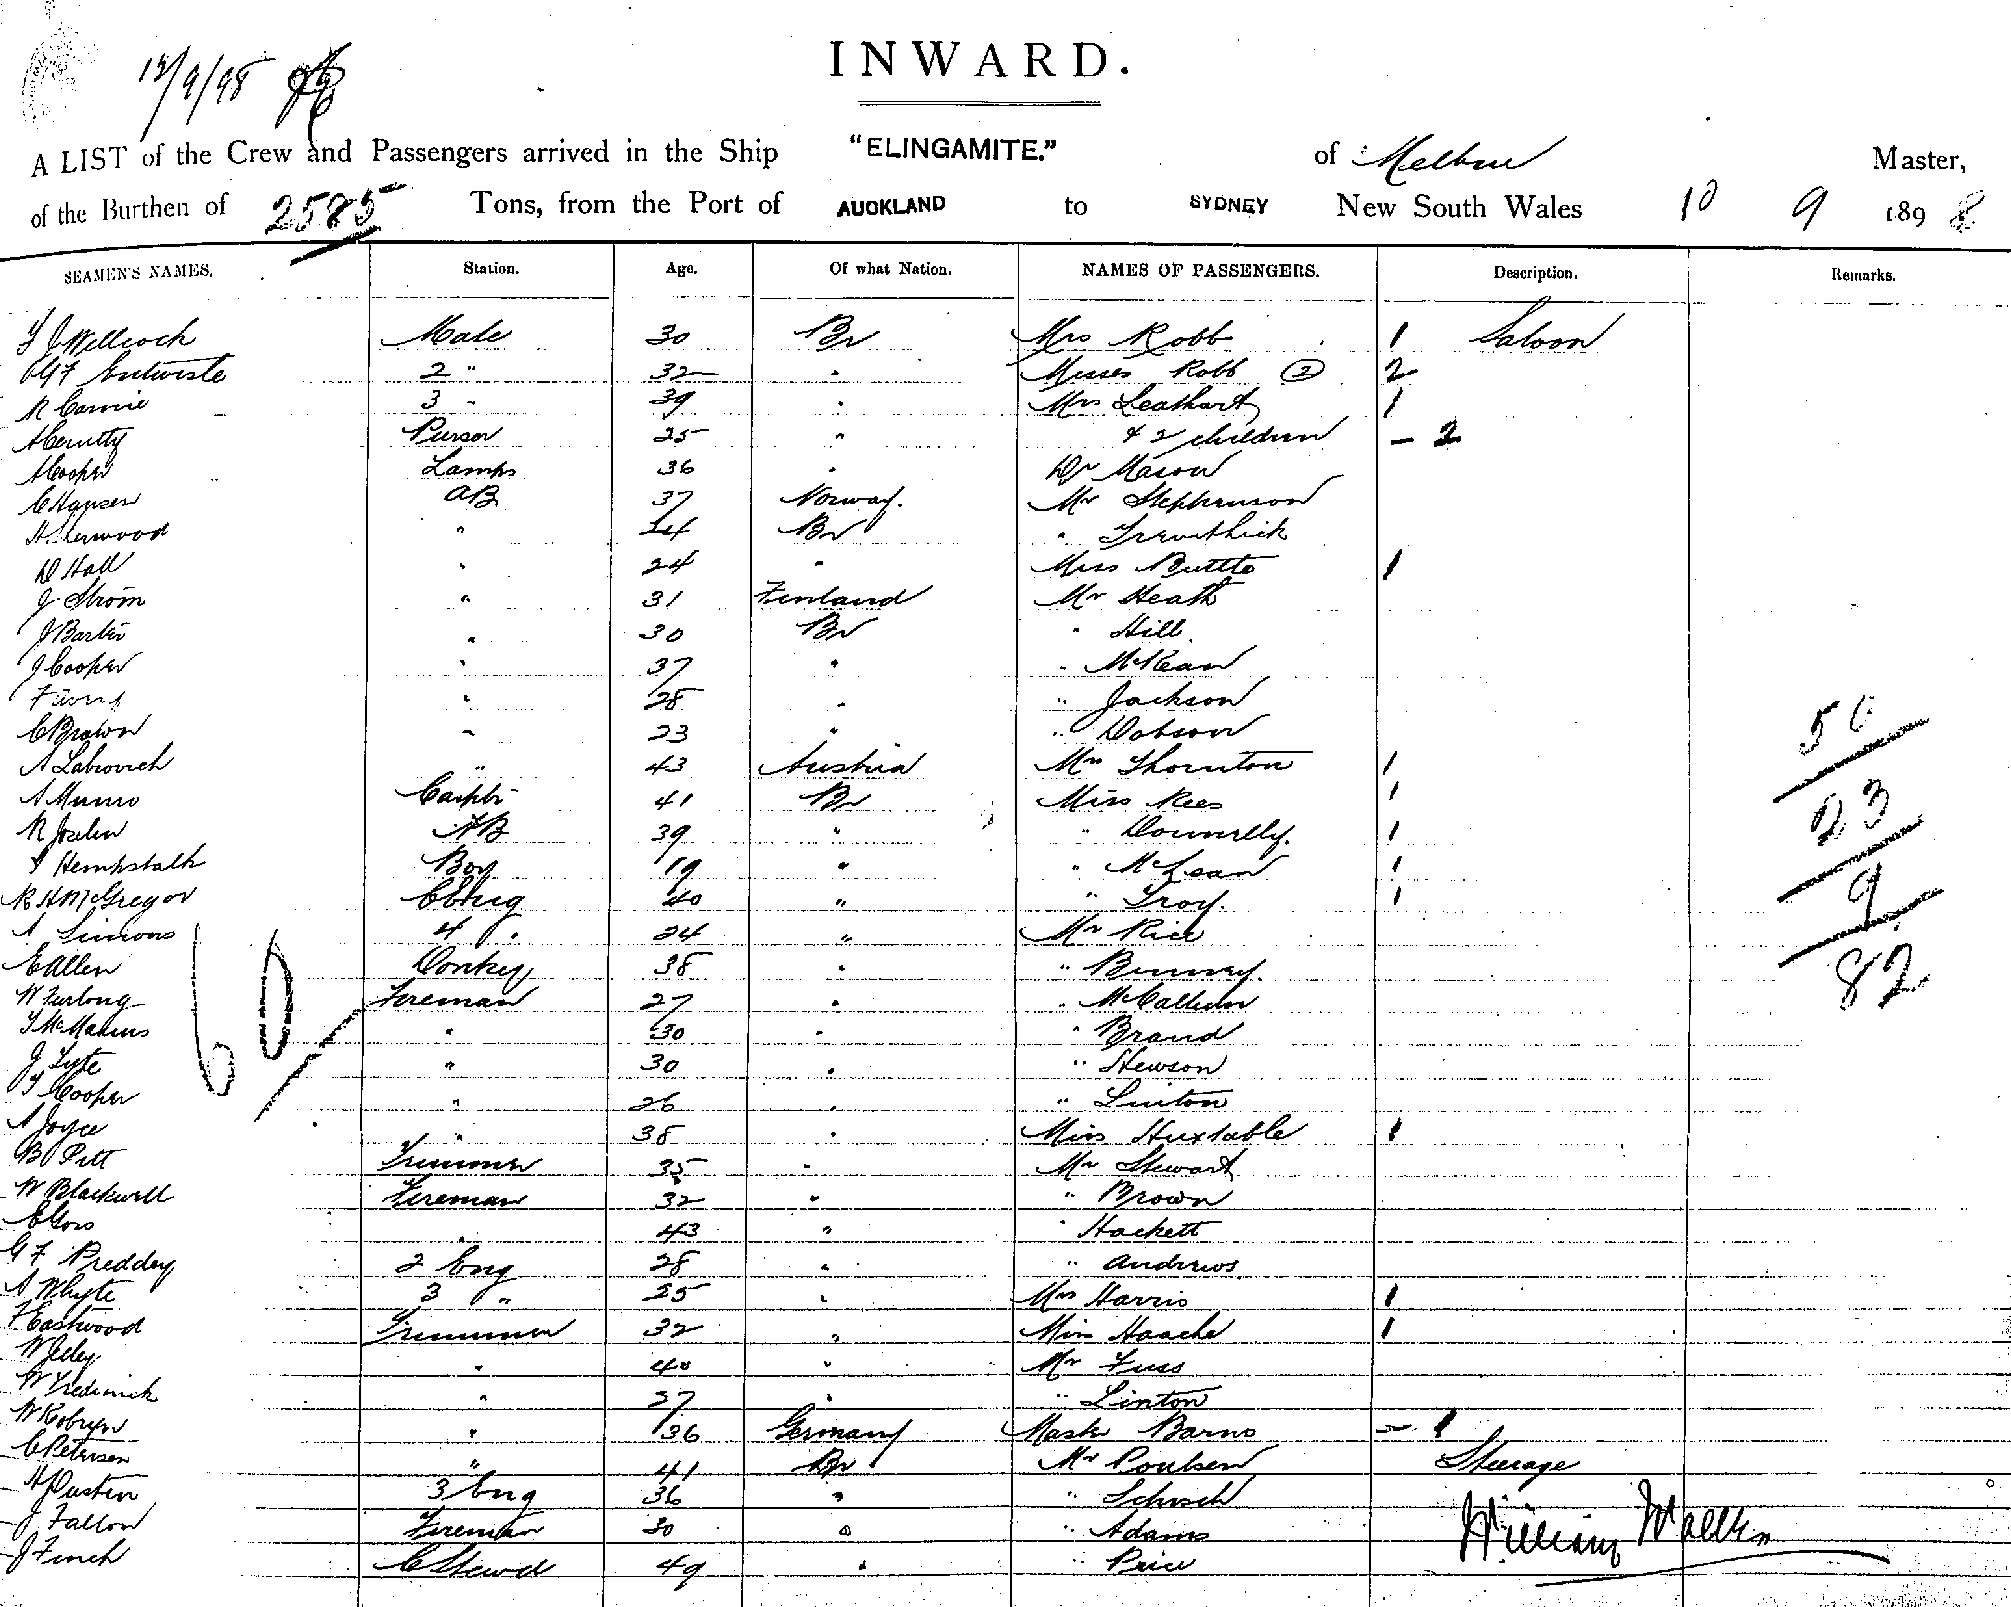 12/9/98
INWARD.
A LIST of the Crew and Passengers arrived in the Ship "ELINGAMITE." of Melbne Master,
of the Burthen of 2585 Tons, from the Port of AUCKLAND to SYDNEY New South Wales 10 9 1898
SEAMEN'S NAMES. Station. Age. Of what Nation. NAMES OF PASSENGERS. Description. Remarks.
Mate 30 Br Mrs Robb 1 Saloon
Entwistle 2 " 32 " Misses Robb (2) 2
3 " 39 " Mrs Leathart 1
Purser 25 " & 2 children - 2
A Cooper Lamps 36 " Dr Mason
C Hansen AB 37 Norway. Mr Stephenson
" Br " Trevithick
D Hall " 24 " Miss Buttle 1
J Strom " 31 Finland Mr Heath
" 30 Br " Hill
J Cooper " 37 " " McKean
" 28 " " Jackson
C Brown " 23 " " Dobson
" 43 Austria Mrs Thornton 1
A Munro 41 Br Miss Rees 1
R Joslin AB 39 " " Donnelly. 1
Hempstalk Boy 19 " " McLean 1
R H McGregor C Eng 40 " " Troy. 1
A Simons 4 " 24 " Mr Rice
E Allen Donkey 38 " " Binney.
W Furlong Fireman 27 " " McCallum
T McManus " 30 " " Brand
J Tyte " 30 " " Hewson
T Cooper " 26 " " Linton
A Joyce " 38 " Miss Huxtable 1
B Pitt Trimmer 35 " Mr Stewart
W Blackwell Fireman 32 " " Brown
" 43 " " Hackett
G F Preddey 2 Eng 28 " " Andrews
A Whyte 3 " 25 " Mrs Harris 1
F Eastwood Trimmer 32 " Miss Haache 1
" 40 " Mr Fuss
" 27 " " Linton
W Robryn " 36 Germany Mastr Barns - 1
C Petersen " 41 Br Mr Poulsen Steerage
3 Eng 36 " "
J Fallon Fireman 30 " " Adams
J Finch C Stewd 49 " " Price
60
23
9
82
William